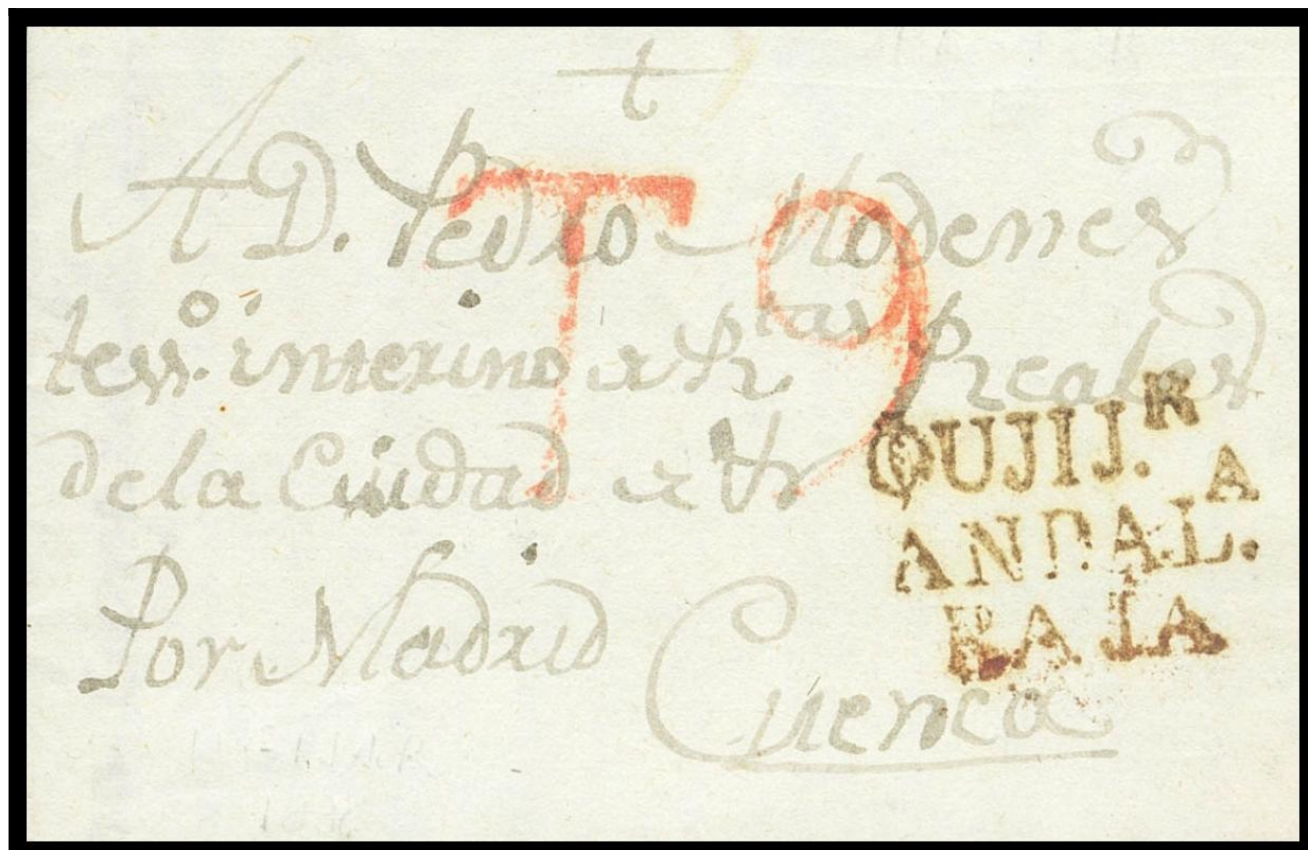 †
A D. Pedro Modenes
tesso. interino de Rtas. Reales
de la Ciudad de
Por Madrid
Cuenca
T 9
QUIJ.R
ANDAL.A
BAJA